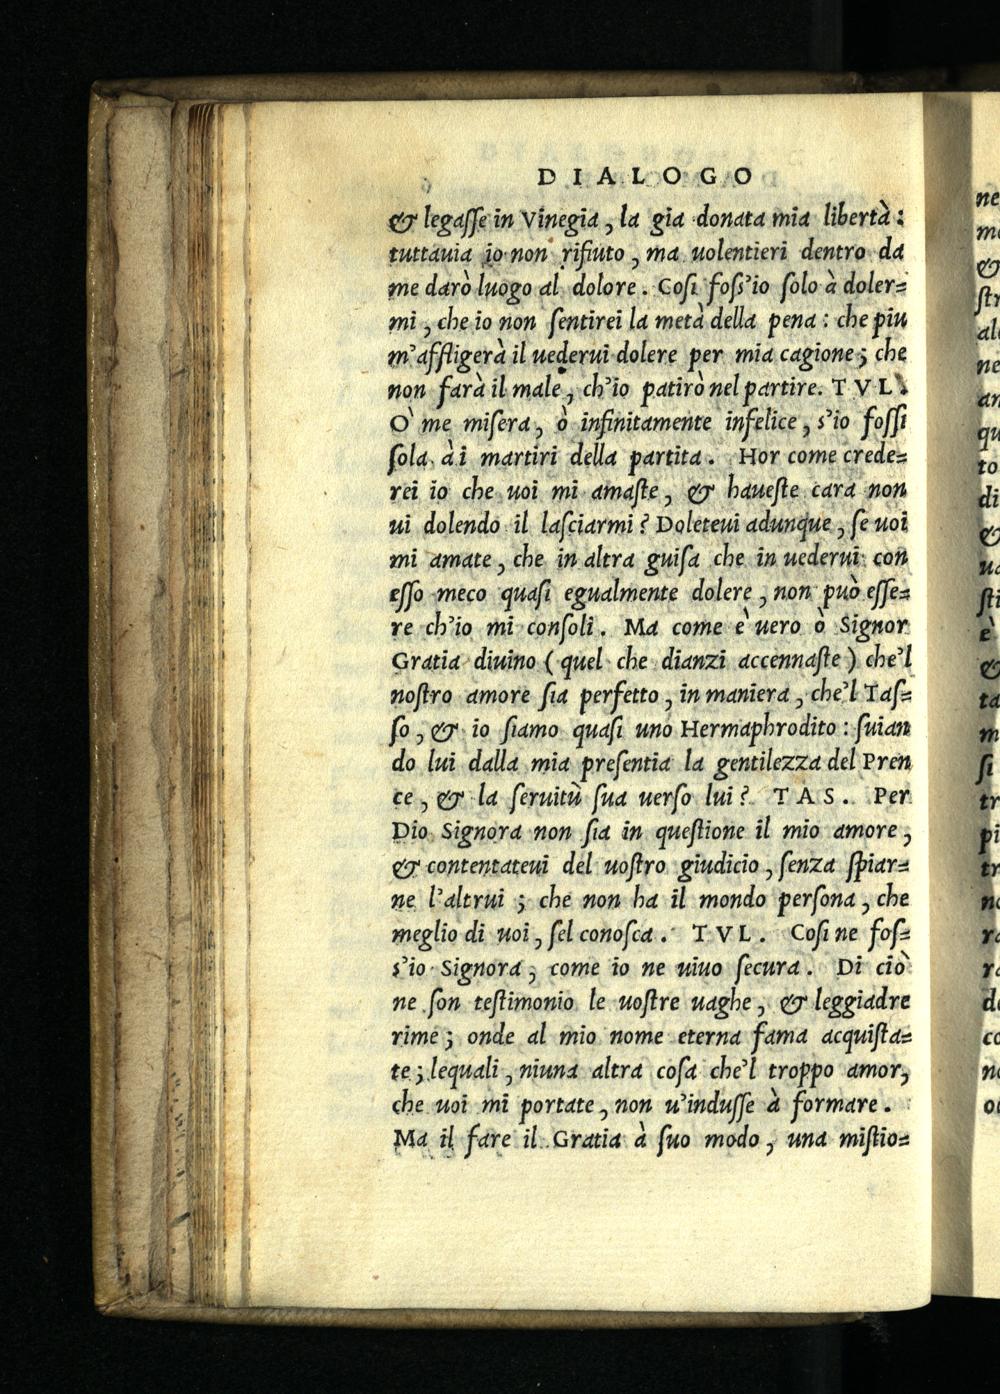 DIALOGO
& legaſſe in Vinegia, la gia donata mia libertà:
tuttauia io non rifiuto, ma uolentieri dentro da
me darò luogo al dolore. Coſi foſs'io ſolo à doler=
mi, che io non ſentirei la metà della pena: che piu
m'affligerà il uederui dolere per mia cagione; che
non farà il male, ch'io patirò nel partire. TVL.
O' me miſera, ò infinitamente infelice, s'io foſſi
ſola ài martiri della partita. Hor come crede=
rei io che uoi mi amaſte, & haueſte cara non
ui dolendo il laſciarmi? Doleteui adunque, ſe uoi
mi amate, che in altra guiſa che in uederui con
eſſo meco quaſi egualmente dolere, non può eſſe=
re ch'io mi conſoli. Ma come è uero ò Signor
Gratia diuino (quel che dianzi accennaſte) che'l
noſtro amore ſia perfetto, in maniera, che'l Taſ=
ſo, & io ſiamo quaſi uno Hermaphrodito: ſuian
do lui dalla mia preſentia la gentilezza del Pren
ce, & la ſeruitù ſua uerſo lui? TAS. Per
Dio Signora non ſia in queſtione il mio amore,
& contentateui del uoſtro giudicio, ſenza ſpiar=
ne l'altrui; che non ha il mondo perſona, che
meglio di uoi, ſel conoſca. TVL. Coſi ne foſ=
s'io Signora, come io ne uiuo ſecura. Di ciò
ne ſon teſtimonio le uoſtre uaghe, & leggiadre
rime; onde al mio nome eterna fama acquiſta=
te; lequali, niuna altra coſa che'l troppo amor,
che uoi mi portate, non u'induſſe à formare.
Ma il fare il Gratia à ſuo modo, una miſtio=